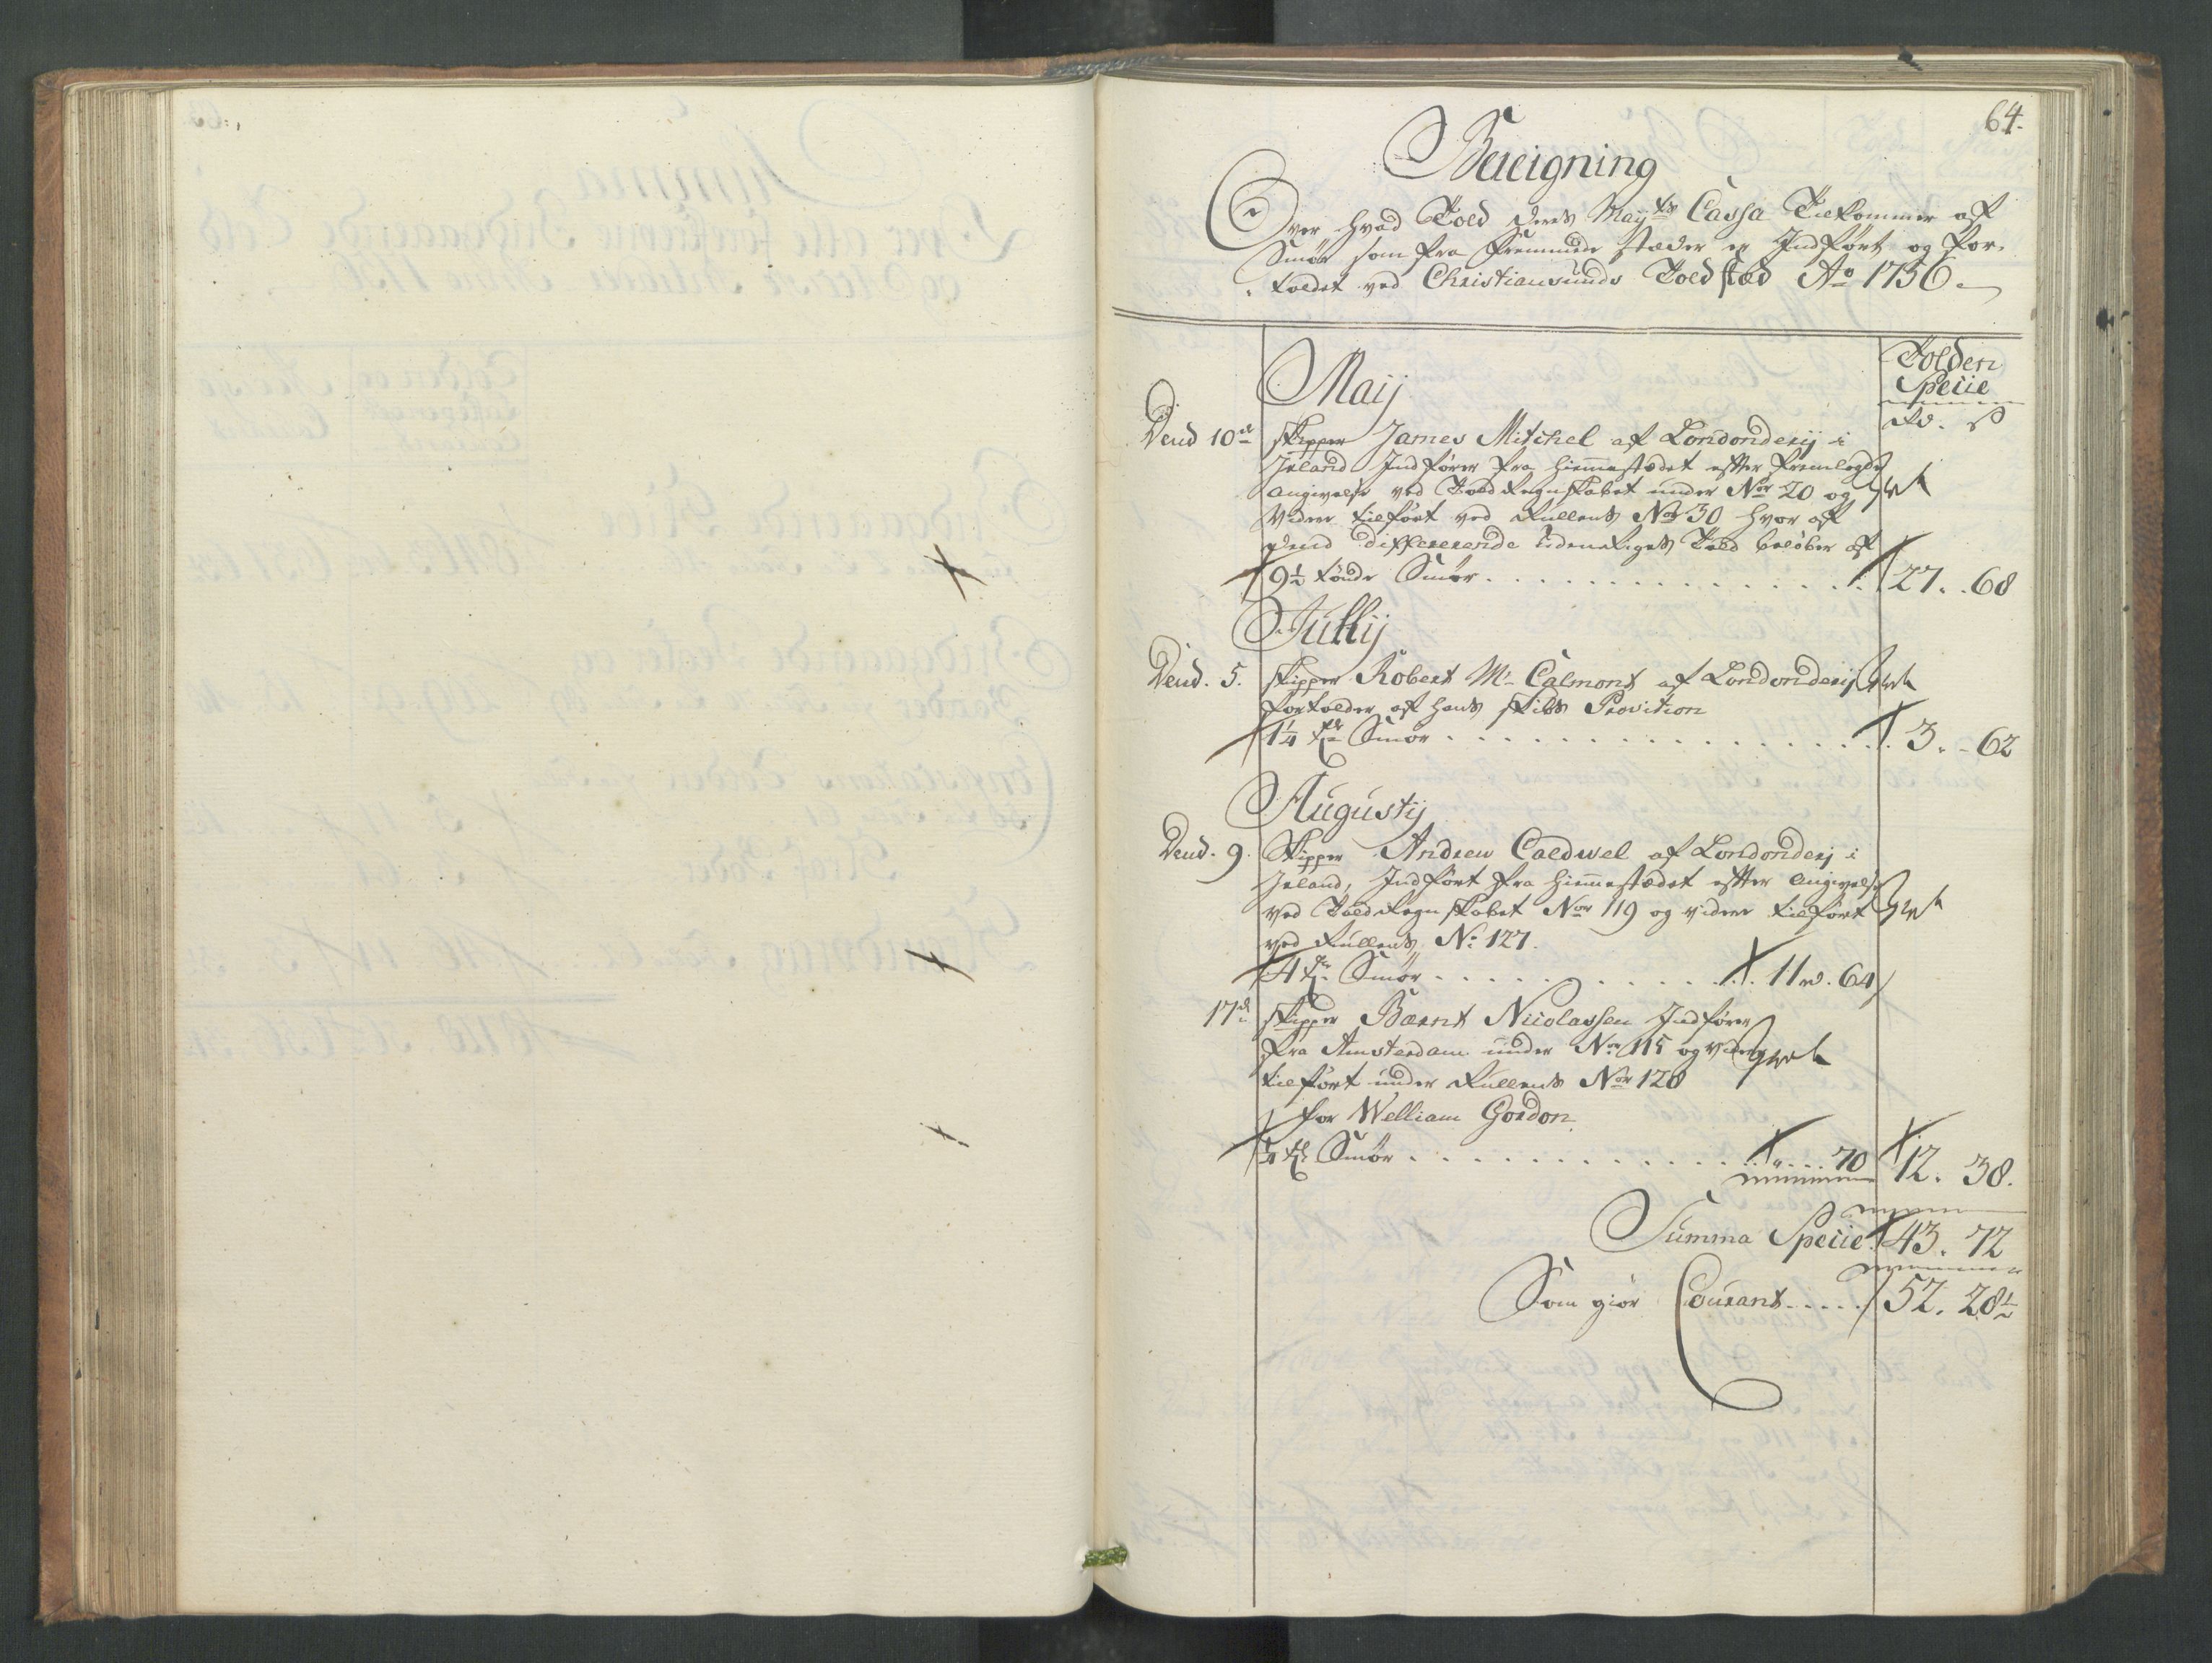 64.
Bereigning
Over hvad Told Deris Mayts Cassa Tilkommer af
Smør som fra fremmede stæder er Indført og For-
toldet ved Christiansunds Toldsted Ao 1756.
Tolden
Specie
Rd. ß
Maij
Dend 10de skipper James Mitchel af Londonderij i
Irland Indfører fra hiemmestædet efter fremlagde
Angivelse ved Toldregnskabet under Nor 20 og
Videre tilført ved Rullens Nor 30 hvor af
dend differerende Told beløber af
9½ tønde Smør 27. 68
Jullij
Dend. 5. skipper Robert Mc Calmont af Londonderij
fortolder af hans skibs Provition
1¼ tde Smør 3. 62
Augustij
Dend. 9. Skipper Andrew Caldwel af Londonderj i
Irland, Indført fra hiemmestædet efter Angivelse
ved Toldregnskabet Nor 119 og videre tilført
ved Rullens No 127.
4 tr Smør 11 rd. 64
17de skipper Barnt Nicolassen Indfører
fra Amsterdam under Nor 115 og videre
tilført under Rullens Nor 128
for Welliam Gordon
¼ td Smør " 70 12. 38.
Summa Specie 43. 72
Som giør Courant 52. 28½